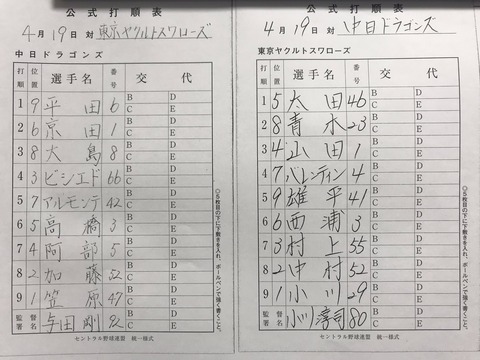 公式打順表
4月19日 対 東京ヤクルトスワローズ
中日ドラゴンズ
打順 位置 選手名 番号 交代
1 9 平田 6 B C D E
2 6 京田 1 B C D E
3 8 大島 8 B C D E
4 3 ビシエド 66 B C D E
5 7 アルモンテ 42 B C D E
6 5 高橋 3 B C D E
7 4 阿部 5 B C D E
8 2 加藤 52 B C D E
9 1 笠原 47 B C D E
監督署名 与田剛 92
セントラル野球連盟 統一様式
○5枚目の下に下敷きを入れ、ボールペンで強く書くこと。
公式打順表
4月19日 対 中日ドラゴンズ
東京ヤクルトスワローズ
打順 位置 選手名 番号 交代
1 5 太田 46 B C D E
2 8 青木 23 B C D E
3 4 山田 1 B C D E
4 7 バレンティン 4 B C D E
5 9 雄平 41 B C D E
6 6 西浦 3 B C D E
7 3 村上 55 B C D E
8 2 中村 52 B C D E
9 1 小川 29 B C D E
監督署名 小川淳司 80
セントラル野球連盟 統一様式
○5枚目の下に下敷きを入れ、ボールペンで強く書くこと。